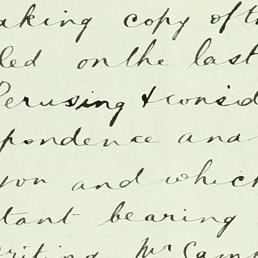 aking copy of th
led on the last
Perusing & consid
pondence and
yon and which
tant bearing
writing Mr Cam